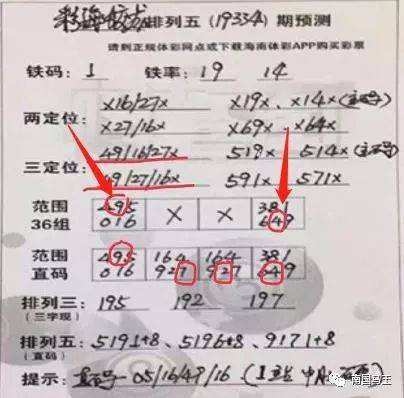 排列五(19334)期预测
请到正规体彩网点或下载海南体彩APP购买彩票
铁码: 1 铁率: 19 14
两定位: ×16/27× ×19×、×14×
×27/16× ×69×、×64×
三定位: 49/16/27× 519×、514×
49/27/16× 591×、571×
范围 495 × × 381
36组 016 649
范围 495 164 164 381
直码 016 927 927 649
排列三: 195 192 197
(三字现)
排列五: 5191+8、5196+8、9171+8
(直码)
提示: 05/16/49/16
南国